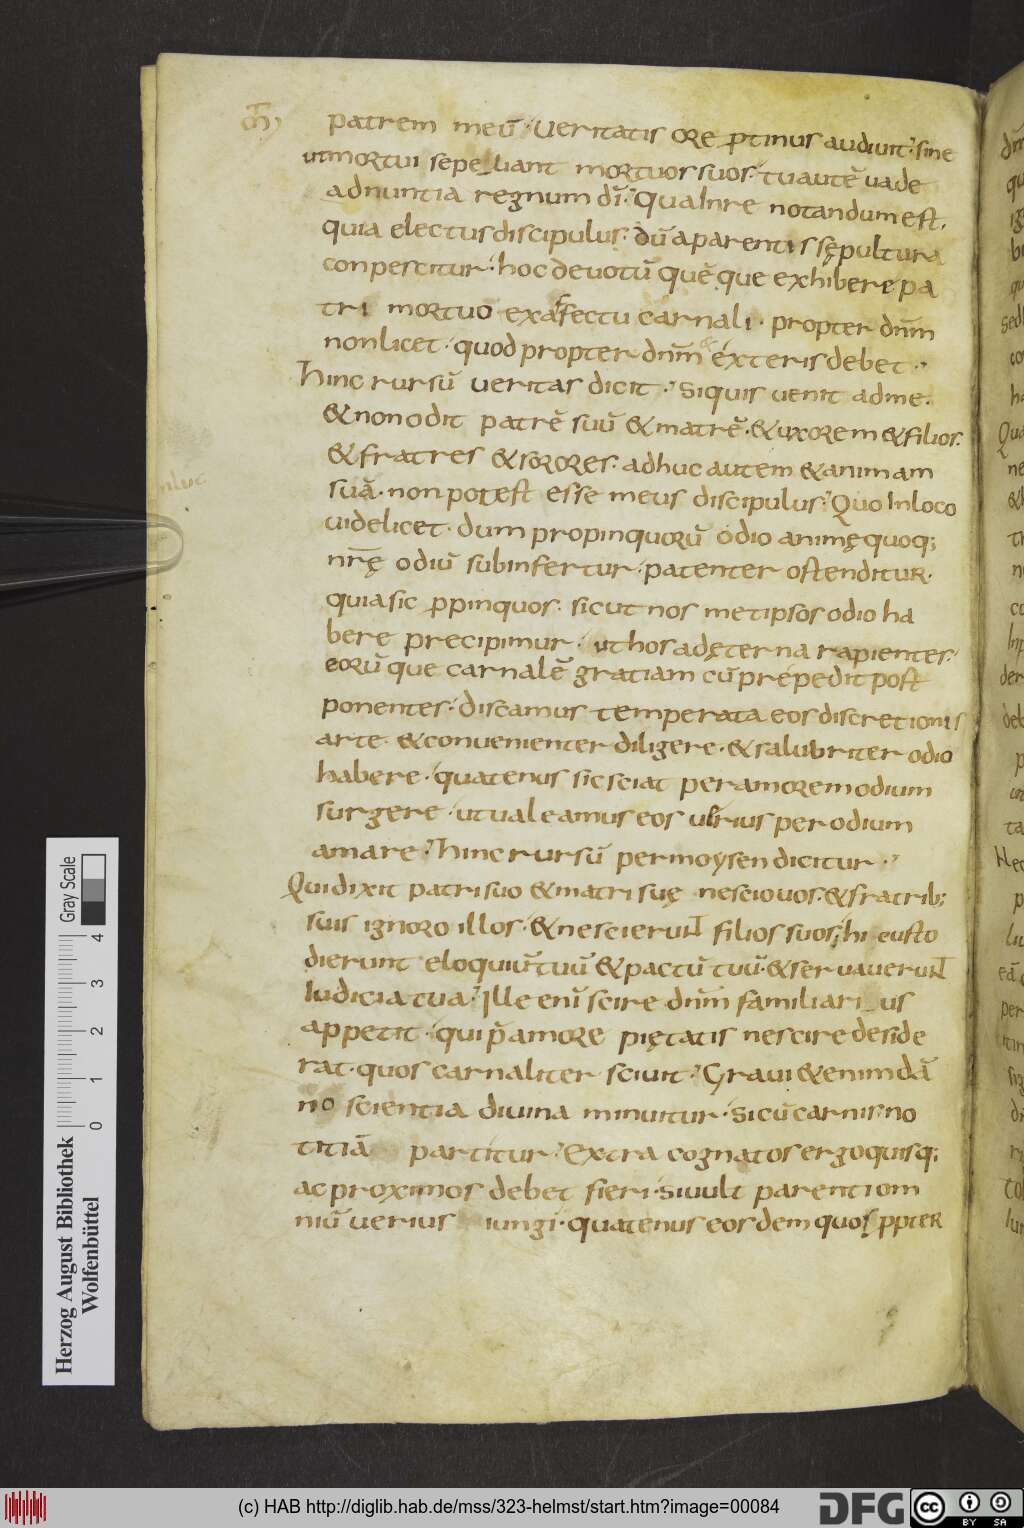 patrem meū; Ueritatis ore ꝓtinus audiuit; sine
ut mortui sepeliant mortuos suos. tu autē uade
adnuntia regnum dī; Qua In re notandum est.
quia electus discipulus. dū a parentis sępultura
conpescitur. hoc deuotū quēque exhibere pa
tri mortuo ex affectu carnali. propter dnm̄
non licet. quod propter dnm̄ exteris debet;
Hinc rursū ueritas dicit; Si quis uenit ad me.
& non odit patrē suū & matrē. & uxorem & filios.
& fratres & sorores. adhuc autem & animam
suā. non potest esse meus discipulus; Quo In loco
uidelicet. dum propinquorū odio animę quoq;
nrę̄ odiū subinfertur. patenter ostenditur.
quia sic ꝓpinquos. sicut nosmetipsos odio ha
bere precipimur. ut hos ad ęterna rapientes.
eorūque carnalē gratiam cū prepedit post
ponentes. discamus temperata eos discretionis
arte. & conuenienter diligere. & salubriter odio
habere. quatenus sic sciat per amorem odium
surgere. ut ualeamus eos uerius per odium
amare; Hinc rursū per moysen dicitur;
Qui dixit patri suo & matri suę nescio uos. & fratrib;
suis ignoro illos. & nescierunt filios suos; hi custo
dierunt eloquiū tuū & pactū tuū. & seruauerunt
Iudicia tua; Ille enī scire dnm̄ familiarius
appetit. qui p̄ amore piętatis nescire deside
rat. quos carnaliter sciuit; Graui &enim dā
no scientia diuina minuitur. si cū carnis no
titiā partitur; Extra cognatos ergo quisq;
ac proximos debet fieri. si uult parenti om
niū uerius iungi. quatenus eosdem quos ꝓpter
Herzog August Bibliothek
Wolfenbüttel
0 1 2 3 4
Gray Scale
(c) HAB http://diglib.hab.de/mss/323-helmst/start.htm?image=00084
DFG
cc
BY SA